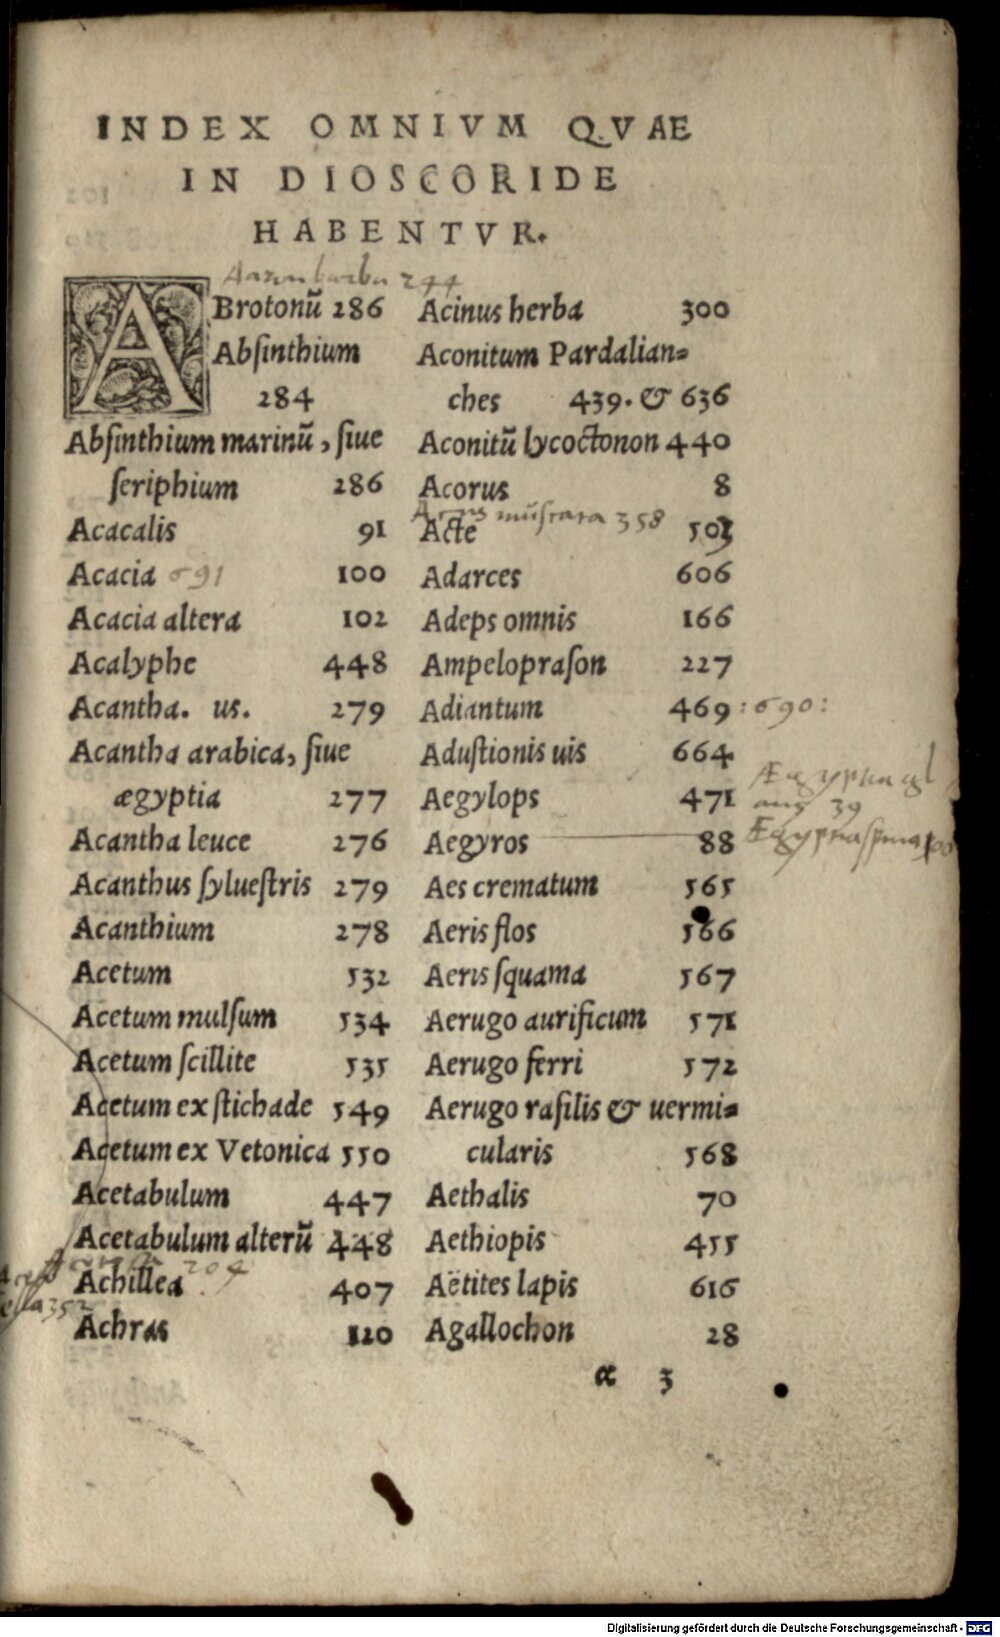 INDEX OMNIVM QVAE
IN DIOSCORIDE
HABENTVR.
244
ABrotonũ 286
Abſinthium
284
Abſinthium marinũ, ſiue
ſeriphium 286
Acacalis 91
Acacia 691 100
Acacia altera 102
Acalyphe 448
Acantha. us. 279
Acantha arabica, ſiue
ægyptia 277
Acantha leuce 276
Acanthus ſylueſtris 279
Acanthium 278
Acetum 532
Acetum mulſum 534
Acetum ſcillite 535
Acetum ex ſtichade 549
Acetum ex Vetonica 550
Acetabulum 447
Acetabulum alterũ 448
204
Achillea 407
352
Achras 120
Acinus herba 300
Aconitum Pardalian-
ches 439. & 636
Aconitũ lycoctonon 440
Acorus 8
358
Acte 503
Adarces 606
Adeps omnis 166
Ampelopraſon 227
Adiantum 469 :690:
Aduſtionis uis 664
Aegylops 471
39
Aegyros 88
Aes crematum 565
Aeris flos 566
Aeris ſquama 567
Aerugo aurificum 571
Aerugo ferri 572
Aerugo raſilis & uermi-
cularis 568
Aethalis 70
Aethiopis 455
Aëtites lapis 616
Agallochon 28
α 3
Digitalisierung gefördert durch die Deutsche Forschungsgemeinschaft - DFG